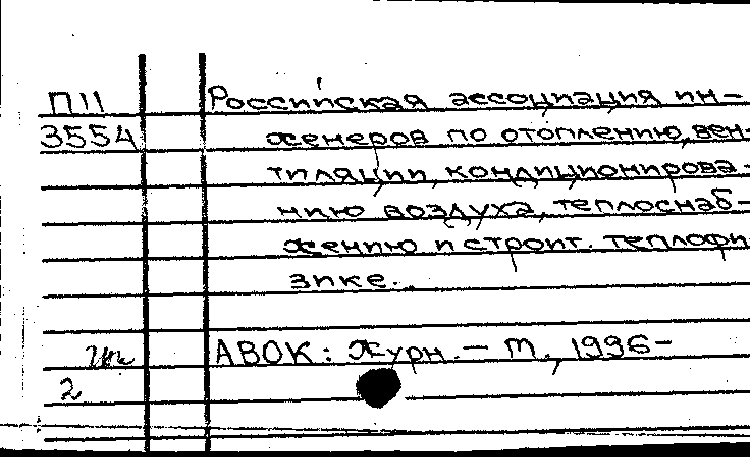 П11 Российская ассоциация ин-
3554 женеров по отоплению, вен-
тиляции, кондиционирова-
нию воздуха, теплоснаб-
жению и строит. теплофи
зике.
АВОК: Журн. – М., 1996–
2